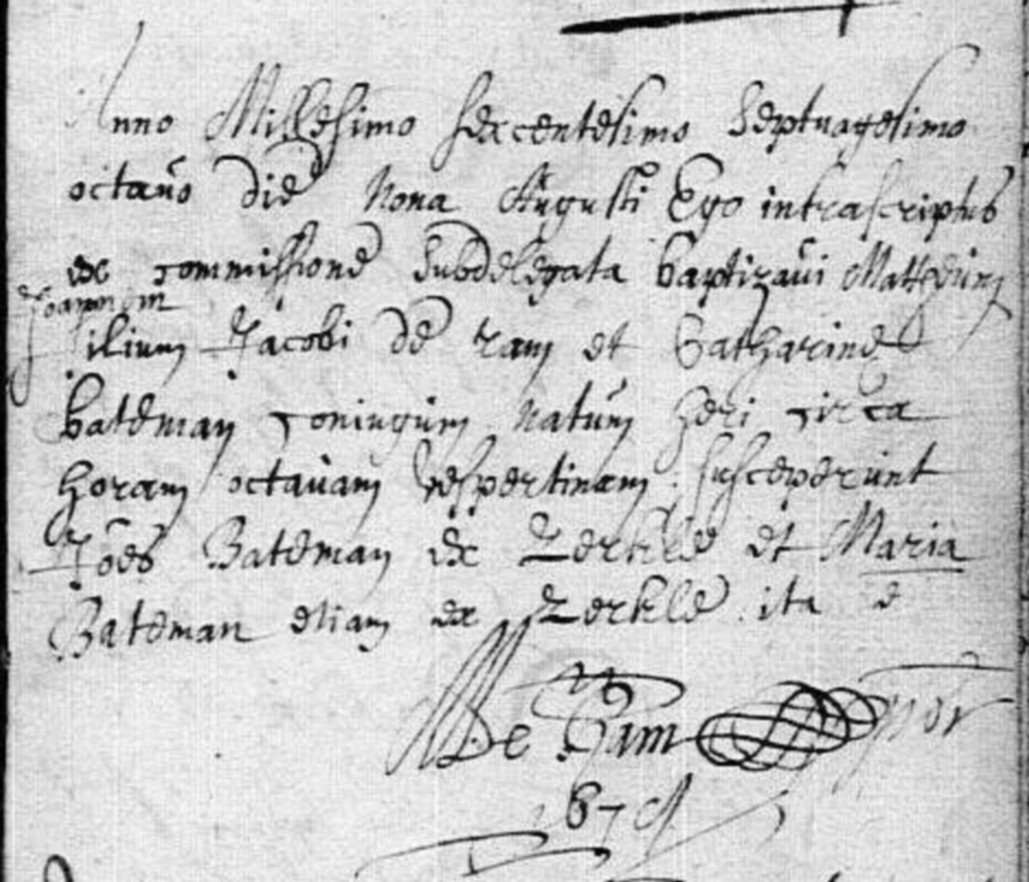 Anno Millesimo sexcentesimo septuagesimo
octavo die nona Augusti Ego infrascriptus
ex commissione subdelegata baptizavi Mattheum
Joannem
filium Jacobi de ram et Catharine
bateman coniugum natum heri circa
horam octavam vespertinam. susceperunt
Jões Bateman ex Zerkle et Maria
Bateman etiam ex Zerkle. ita e
De ham pbr
167